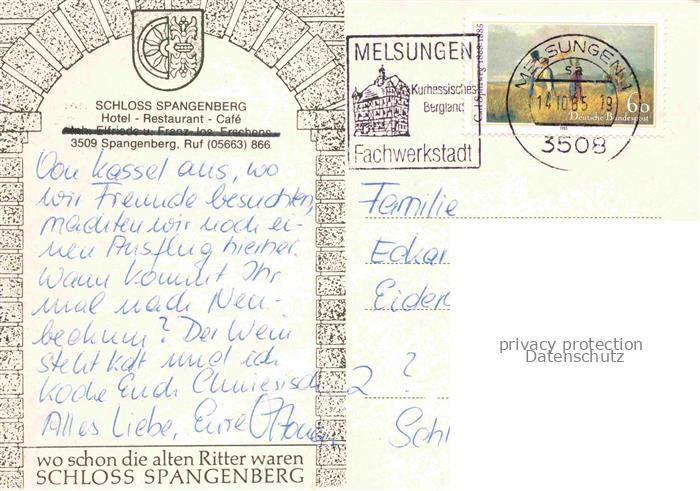 SCHLOSS SPANGENBERG
Hotel - Restaurant - Café
Inh. Elfriede u. Franz Jos. Frechens
3509 Spangenberg, Ruf (05663) 866
Von Kassel aus, wo
wir Freunde besuchten,
machten wir noch ei-
nen Ausflug hierher.
Wann kommt Ihr
mal nach Neu-
beckum? Der Wein
steht kalt und ich
koche Euch Chinesisch.
Alles Liebe, Eure
wo schon die alten Ritter waren
SCHLOSS SPANGENBERG
MELSUNGEN
Kurhessisches
Bergland
Fachwerkstadt
Carl Spitzweg 1808-1885
60
Deutsche Bundespost
MELSUNGEN 1
sa
14.10.85.19
3508
Familie
Eckar
Eider
2 ?
Schl
privacy protection
Datenschutz